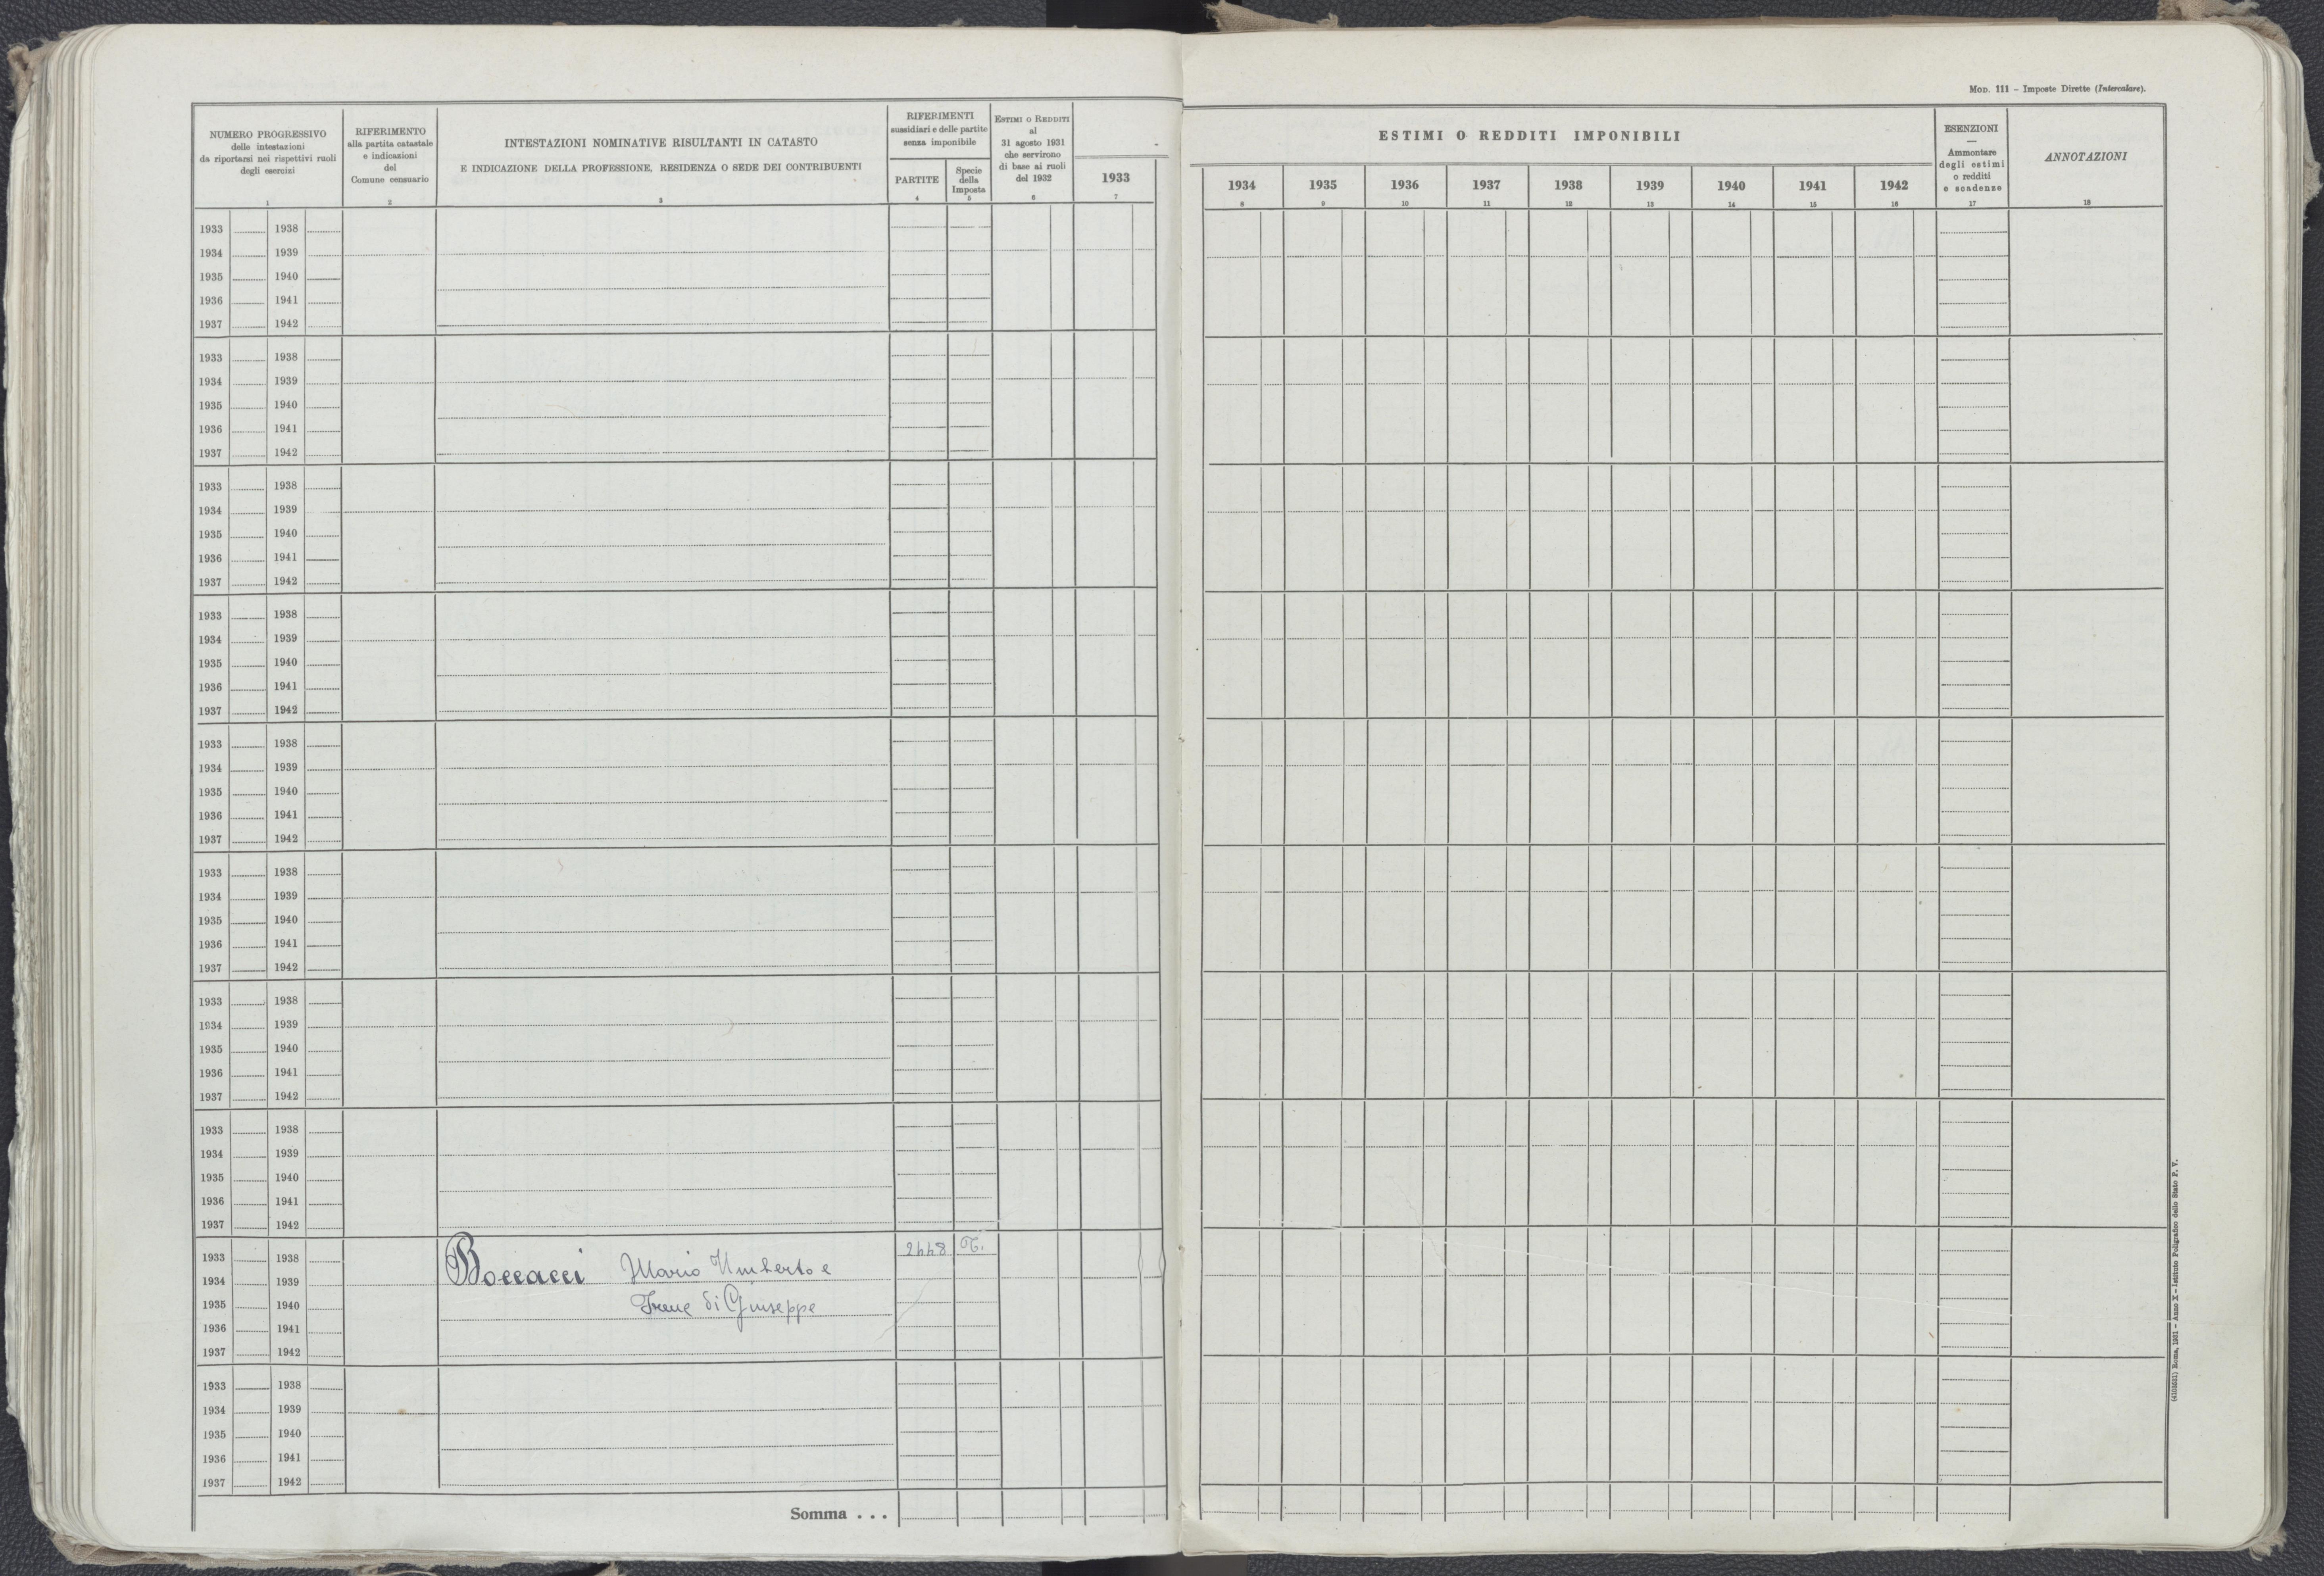 MOD. 111 – Imposte Dirette (Intercalare).
NUMERO PROGRESSIVO
delle intestazioni
da riportarsi nei rispettivi ruoli
degli esercizi
1
RIFERIMENTO
alla partita catastale
e indicazioni
del
Comune censuario
2
INTESTAZIONI NOMINATIVE RISULTANTI IN CATASTO
E INDICAZIONE DELLA PROFESSIONE, RESIDENZA O SEDE DEI CONTRIBUENTI
3
RIFERIMENTI
sussidiari e delle partite
senza imponibile
PARTITE
4
Specie
della
Imposta
5
ESTIMI O REDDITI
al
31 agosto 1931
che servirono
di base ai ruoli
del 1932
6
1933
7
ESTIMI O REDDITI IMPONIBILI
1934 1935 1936 1937 1938 1939 1940 1941 1942
8 9 10 11 12 13 14 15 16
ESENZIONI
—
Ammontare
degli estimi
o redditi
e scadenze
17
ANNOTAZIONI
18
1933 1938
1934 1939
1935 1940
1936 1941
1937 1942
1933 1938
1934 1939
1935 1940
1936 1941
1937 1942
1933 1938
1934 1939
1935 1940
1936 1941
1937 1942
1933 1938
1934 1939
1935 1940
1936 1941
1937 1942
1933 1938
1934 1939
1935 1940
1936 1941
1937 1942
1933 1938
1934 1939
1935 1940
1936 1941
1937 1942
1933 1938
1934 1939
1935 1940
1936 1941
1937 1942
1933 1938
1934 1939
1935 1940
1936 1941
1937 1942
1933 1938 2448 T.
1934 1939 Boccacci Mario Umberto e
1935 1940 Irene di Giuseppe
1936 1941
1937 1942
1933 1938
1934 1939
1935 1940
1936 1941
1937 1942
Somma . . .
(4103521) Roma, 1931 – Anno X – Istituto Poligrafico dello Stato P. V.